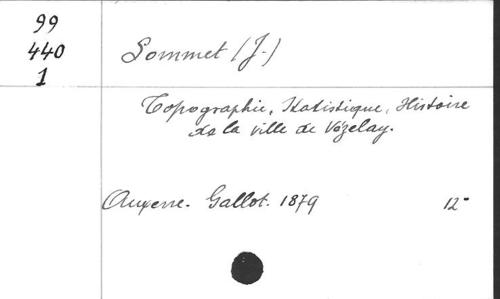 99
440
1
Sommet (J.)
Topographie, Statistique, Histoire
de la ville de Vézelay.
Auxerre. Gallot. 1879 12°